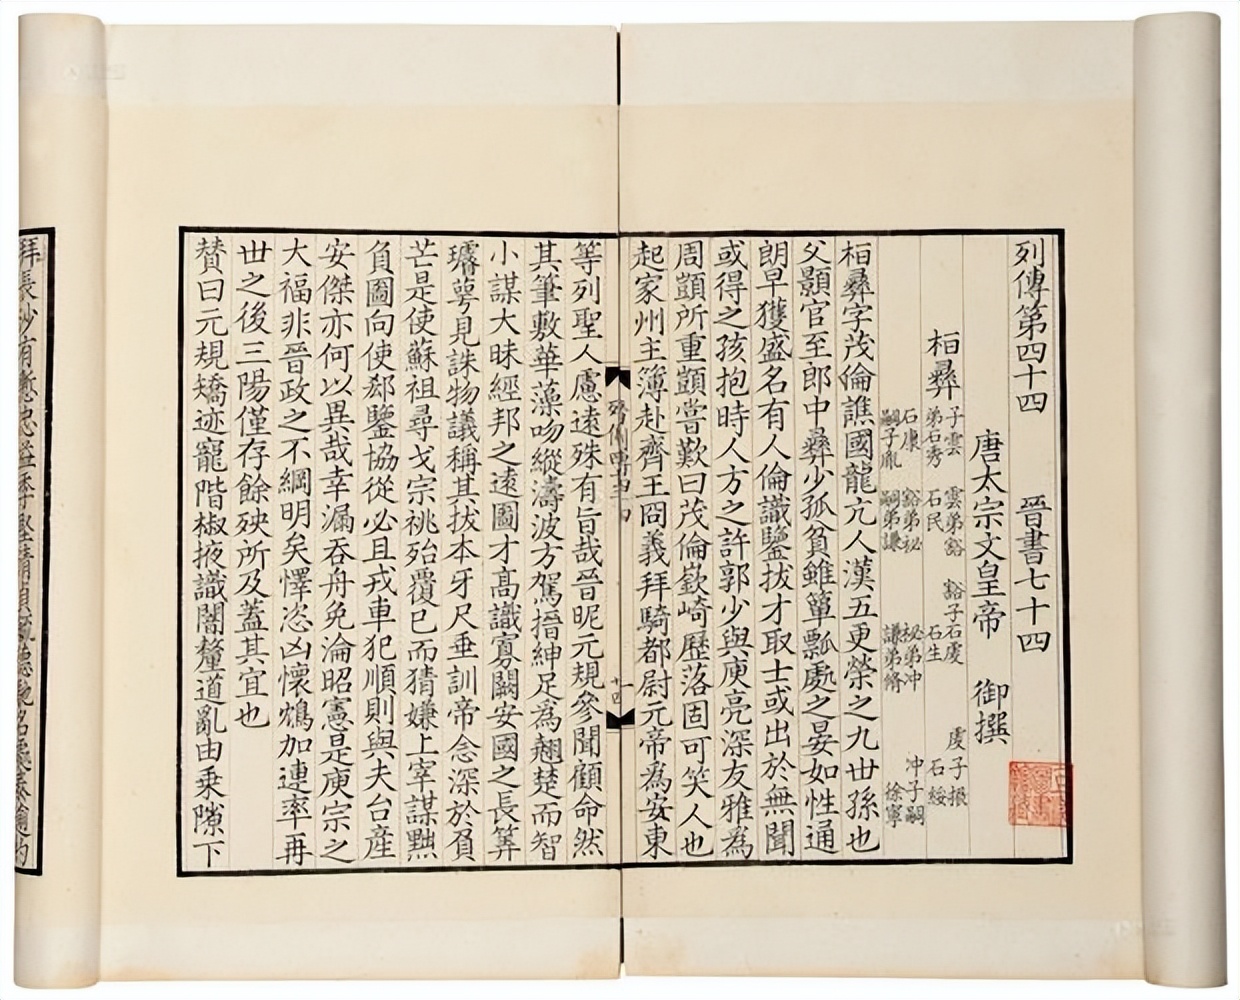 列傳第四十四　晉書七十四
唐太宗文皇帝　御撰
桓彝
子雲　雲弟豁　豁子石虔　虔子振
弟石秀　石民　石生　石綏
石康　豁弟祕　祕弟沖　沖子嗣
嗣子胤　嗣弟謙　謙弟脩　徐寧
桓彝字茂倫譙國龍亢人漢五更榮之九世孫也
父顥官至郎中彝少孤貧雖簞瓢處之晏如性通
朗早獲盛名有人倫識鑒拔才取士或出於無聞
或得之孩抱時人方之許郭少與庾亮深友雅爲
周顗所重顗嘗歎曰茂倫嶔崎歷落固可笑人也
起家州主簿赴齊王冏義拜騎都尉元帝爲安東
等列聖人慮遠殊有旨哉晉昵元規參聞顧命然
其筆敷華藻吻縱濤波方駕搢紳足爲翹楚而智
小謀大昧經邦之遠圖才高識寡闕安國之長筭
璿萼見誅物議稱其拔本牙尺垂訓帝念深於負
芒是使蘇祖尋戈宗祧殆覆已而猜嫌上宰謀黜
負圖向使郄鑒協從必且戎車犯順則與夫台產
安傑亦何以異哉幸漏吞舟免淪昭憲是庾宗之
大福非晉政之不綱明矣懌恣凶懷鴆加連率再
世之後三陽僅存餘殃所及蓋其宜也
贊曰元規矯迹寵階椒掖識闇釐道亂由乘隙下